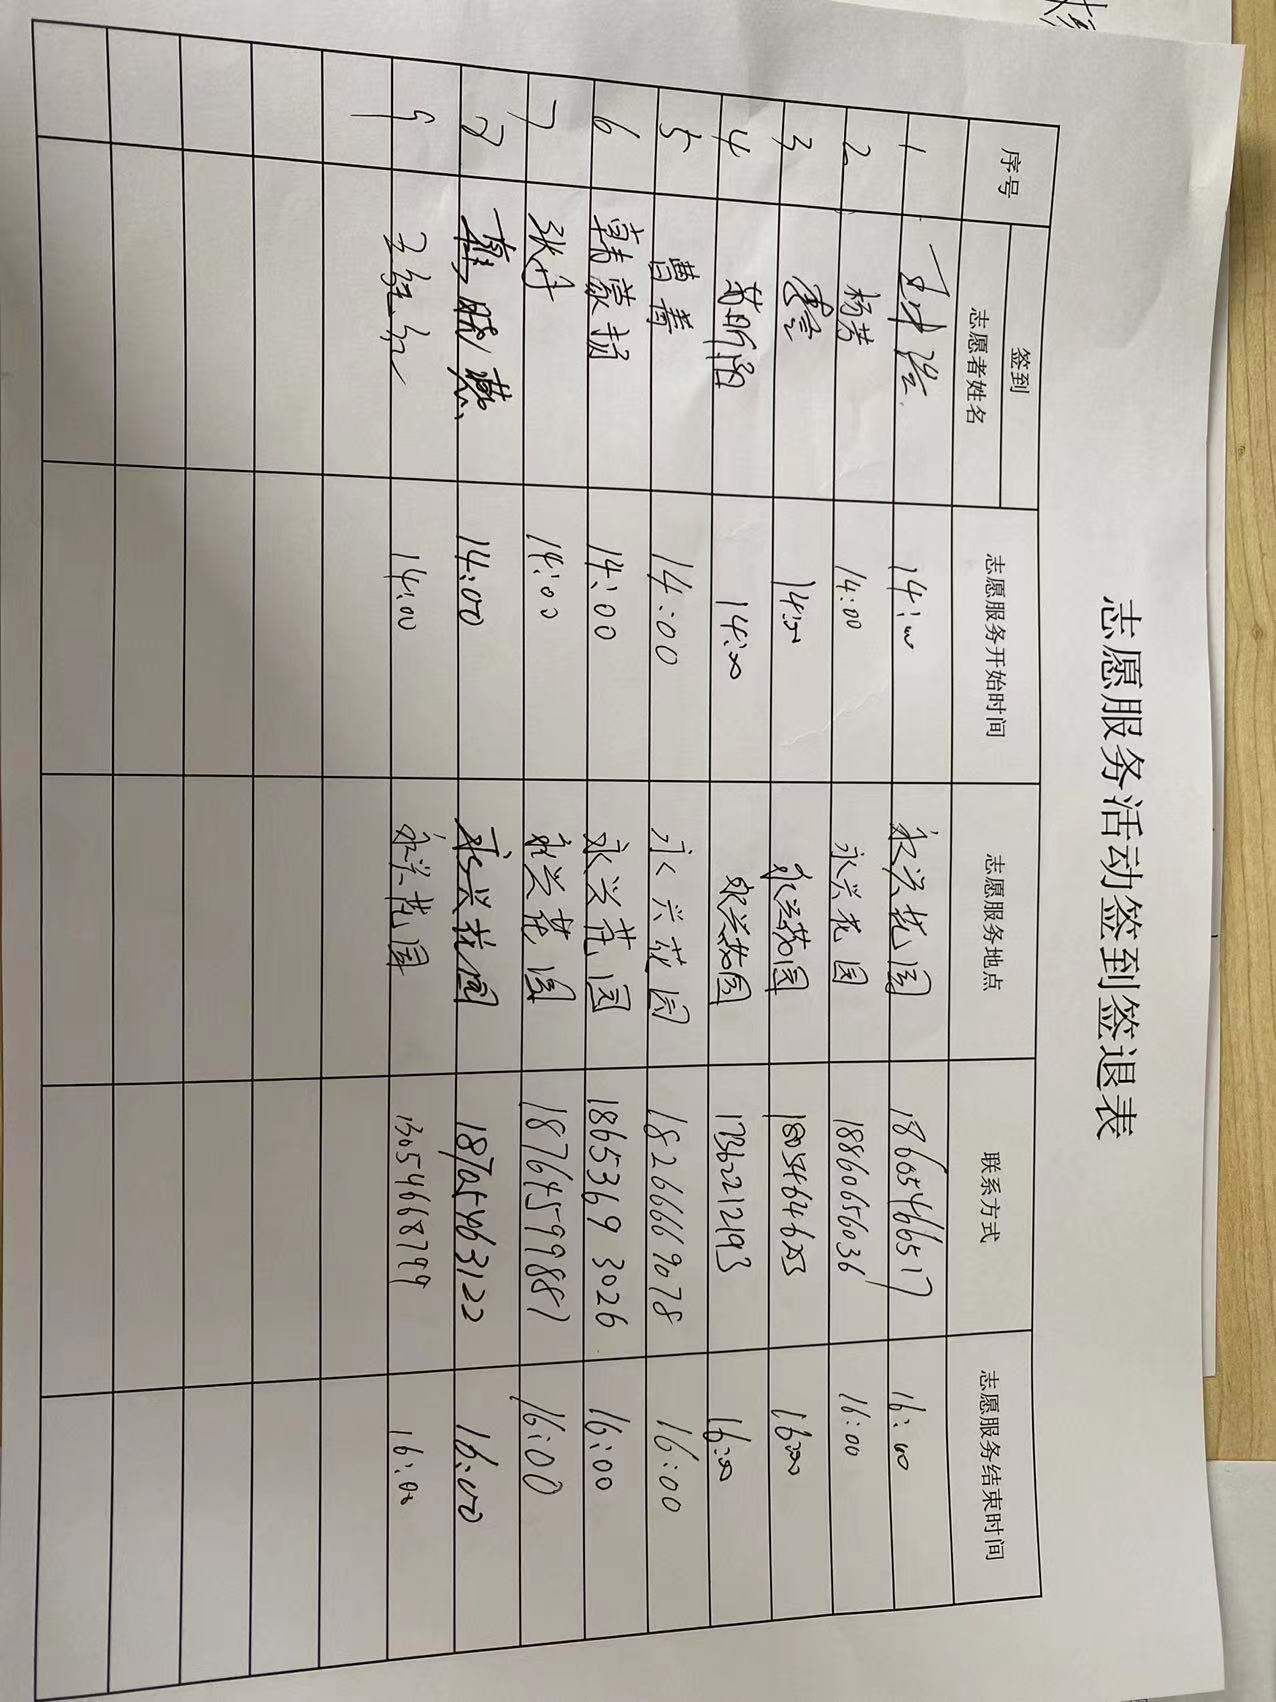 志愿服务活动签到签退表
签到
序号 志愿者姓名 志愿服务开始时间 志愿服务地点 联系方式 志愿服务结束时间
1 14:00 永兴花园 18605466517 16:00
2 杨芳 14:00 永兴花园 18860656036 16:00
3 14:00 永兴花园 16:00
4 14:00 永兴花园 17362212193 16:00
5 曹青 14:00 永兴花园 18266669078 16:00
6 韩蒙杨 14:00 永兴花园 18653693026 16:00
7 14:00 永兴花园 18764599887 16:00
8 14:00 永兴花园 18705463122 16:00
9 14:00 永兴花园 13054668799 16:00